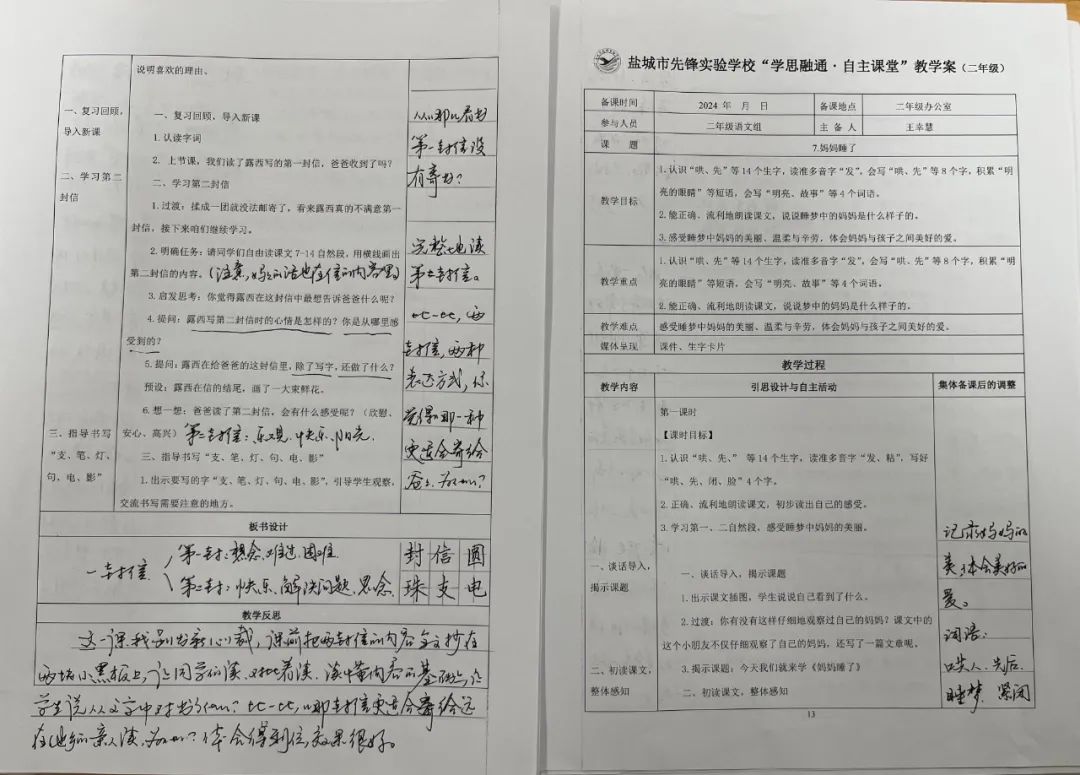 说明喜欢的理由。
一、复习回顾，
导入新课
一、复习回顾，导入新课
1.认读字词
2. 上节课，我们读了露西写的第一封信，爸爸收到了吗？
二、学习第二
封信
二、学习第二封信
1.过渡：揉成一团就没法邮寄了，看来露西真的不满意第一
封信，接下来咱们继续学习。
2.明确任务：请同学们自由读课文 7-14 自然段，用横线画出
第二封信的内容。（注意，妈妈的话也在信的内容里）
3.启发思考：你觉得露西在这封信中最想告诉爸爸什么呢？
4.提问：露西写第二封信时的心情是怎样的？你是从哪里感
受到的？
5.提问：露西在给爸爸的这封信里，除了写字，还做了什么？
预设：露西在信的结尾，画了一大束鲜花。
6.想一想：爸爸读了第二封信，会有什么感受呢？（欣慰、
安心、高兴） 第二封信：乐观、快乐、阳光。
三、指导书写
“支、笔、灯、
句、电、影”
三、指导书写“支、笔、灯、句、电、影”
1.出示要写的字“支、笔、灯、句、电、影”，引导学生观察，
交流书写需要注意的地方。
从哪儿看出
第一封信没
有寄出？
完整地读
第二封信。
比一比，两
封信，两种
表达方式，你
觉得哪一种
更适合寄给
爸爸，为什么？
板书设计
一封信
第一封：想念、难过、困难
第二封：快乐、解决问题、思念
封 信 圆
珠 支 电
教学反思
这一课我别出新心裁，课前把两封信的内容全文抄在
两块小黑板上，让同学们读、对比着读，读懂内容的基础上，让
学生说从文字中对出什么？比一比，哪封信更适合寄给远
在他乡的亲人读，为什么？体会得到位，效果很好。
盐城市先锋实验学校“学思融通·自主课堂”教学案（二年级）
备课时间 2024 年 月 日 备课地点 二年级办公室
参与人员 二年级语文组 主 备 人 王幸慧
课 题 7.妈妈睡了
教学目标
1.认识“哄、先”等 14 个生字，读准多音字“发”，会写“哄、先”等 8 个字，积累“明
亮的眼睛”等短语，会写“明亮、故事”等 4 个词语。
2.能正确、流利地朗读课文，说说睡梦中的妈妈是什么样子的。
3.感受睡梦中妈妈的美丽、温柔与辛劳，体会妈妈与孩子之间美好的爱。
教学重点
1.认识“哄、先”等 14 个生字，读准多音字“发”，会写“哄、先”等 8 个字，积累“明
亮的眼睛”等短语，会写“明亮、故事”等 4 个词语。
2.能正确、流利地朗读课文，说说睡梦中的妈妈是什么样子的。
教学难点 感受睡梦中妈妈的美丽、温柔与辛劳，体会妈妈与孩子之间美好的爱。
媒体呈现 课件、生字卡片
教学过程
教学内容 引思设计与自主活动 集体备课后的调整
第一课时
【课时目标】
1.认识“哄、先、” 等 14 个生字，读准多音字“发、粘”，写好
“哄、先、闭、脸”4 个字。
2.正确、流利地朗读课文，初步读出自己的感受。
3.学习第一、二自然段，感受睡梦中妈妈的美丽。
一、谈话导入，
揭示课题
一、谈话导入，揭示课题
1.出示课文插图，学生说说自己看到了什么。
2.过渡：你有没有这样仔细地观察过自己的妈妈？课文中的
这个小朋友不仅仔细观察了自己的妈妈，还写了一篇文章呢。
3.揭示课题：今天我们就来学《妈妈睡了》
二、初读课文，
整体感知
二、初读课文，整体感知
妈妈的
美，体会美好的
爱。
词语：
哄人、先后、
睡梦、紧闭
13